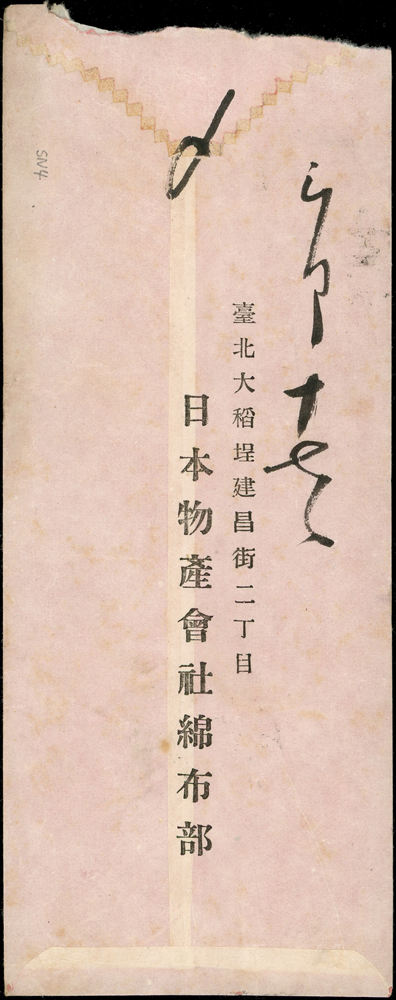 十七
臺北大稻埕建昌街二丁目
日本物產會社綿布部
〆
SN4